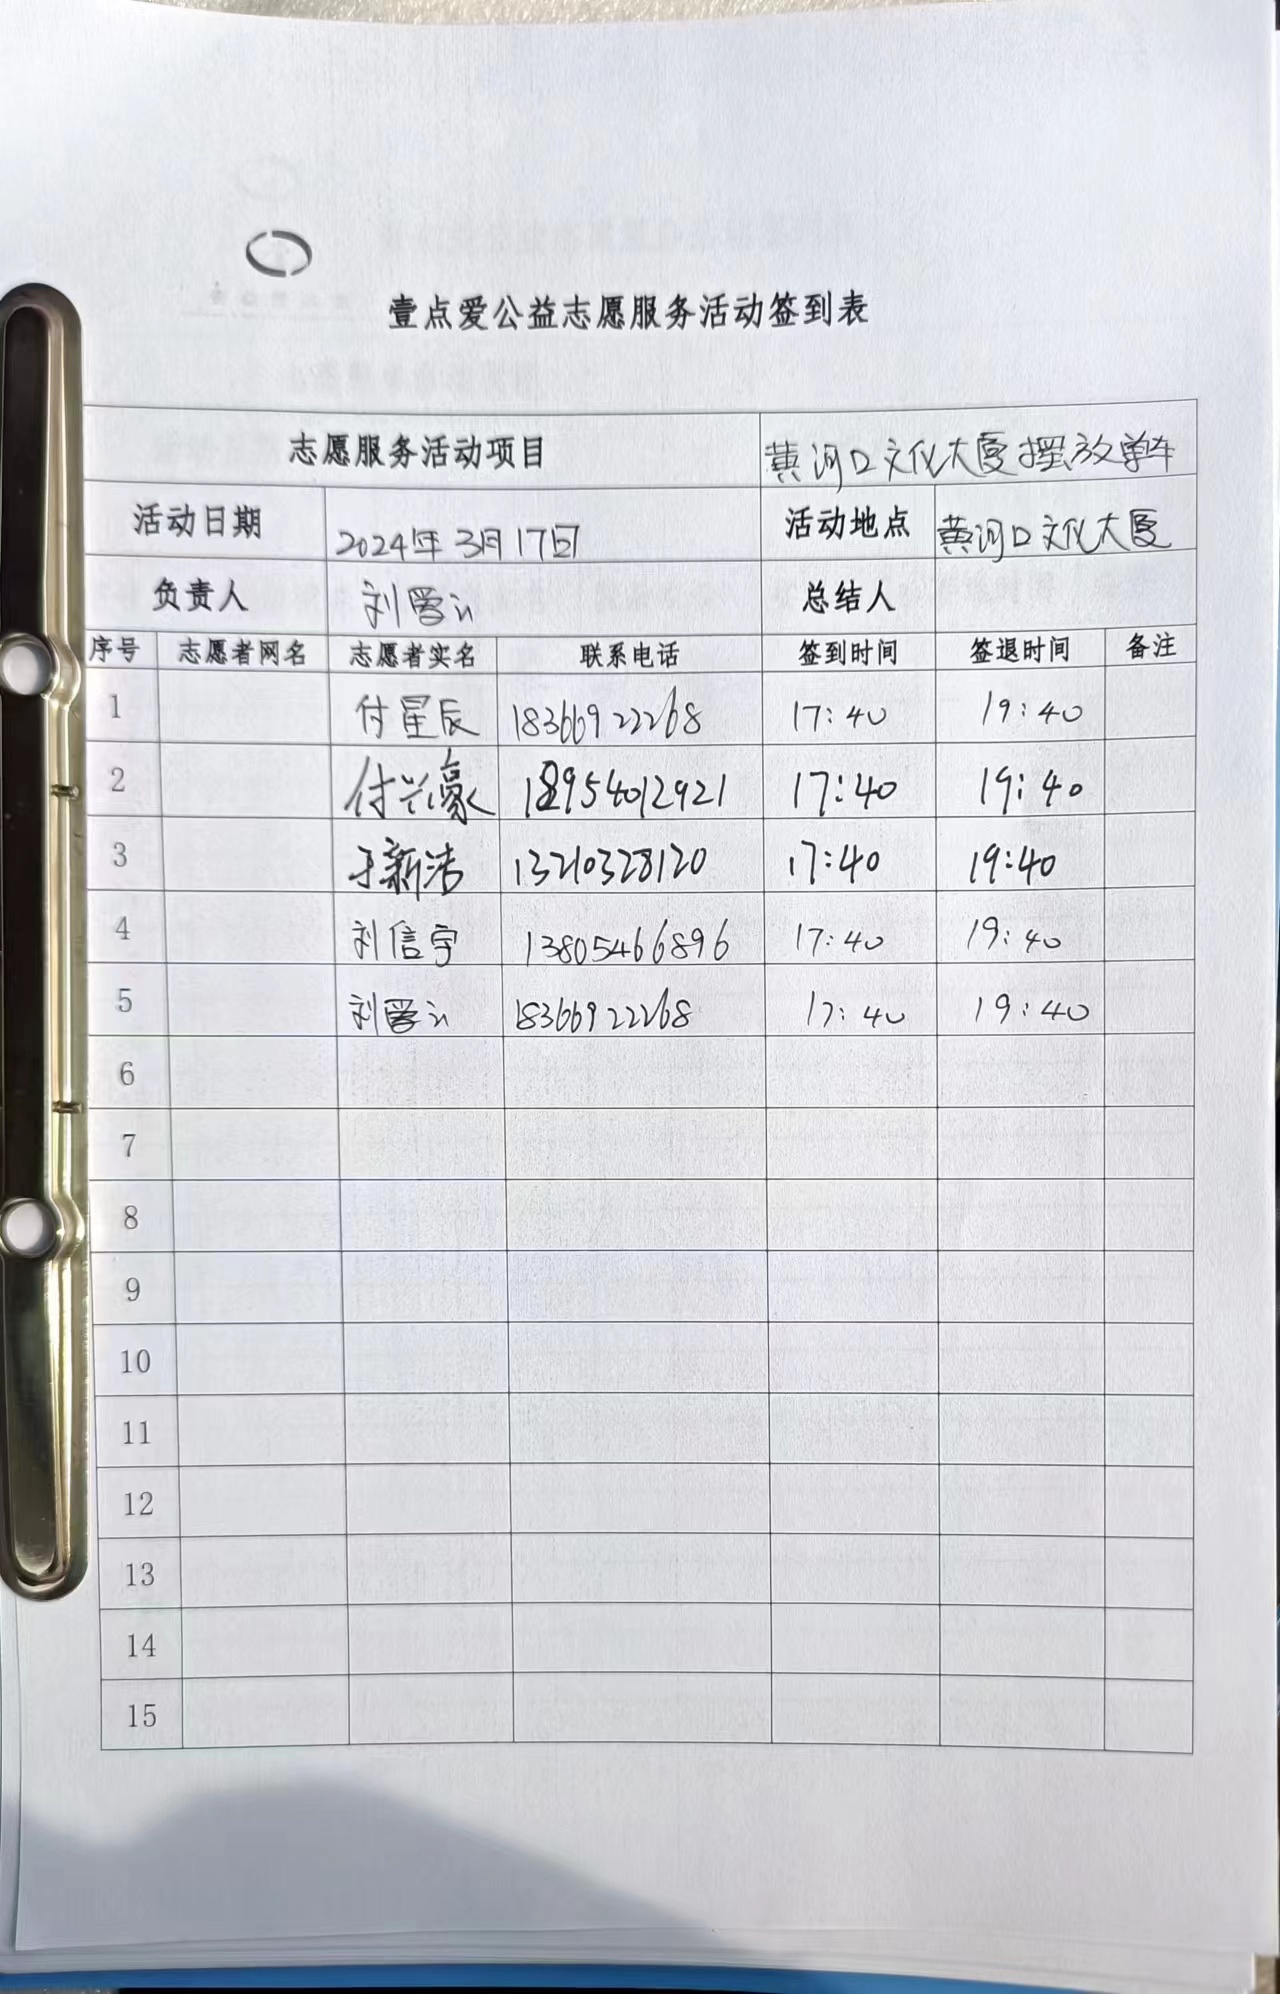 壹点爱公益志愿服务活动签到表
志愿服务活动项目 黄河口文化大厦摆放单车
活动日期 2024年3月17日 活动地点 黄河口文化大厦
负责人 刘 总结人
序号 志愿者网名 志愿者实名 联系电话 签到时间 签退时间 备注
1 付星辰 18366922268 17:40 19:40
2 付兴豪 18954012921 17:40 19:40
3 于新洁 13210328120 17:40 19:40
4 刘信宇 13805466896 17:40 19:40
5 刘 18366922268 17:40 19:40
6
7
8
9
10
11
12
13
14
15